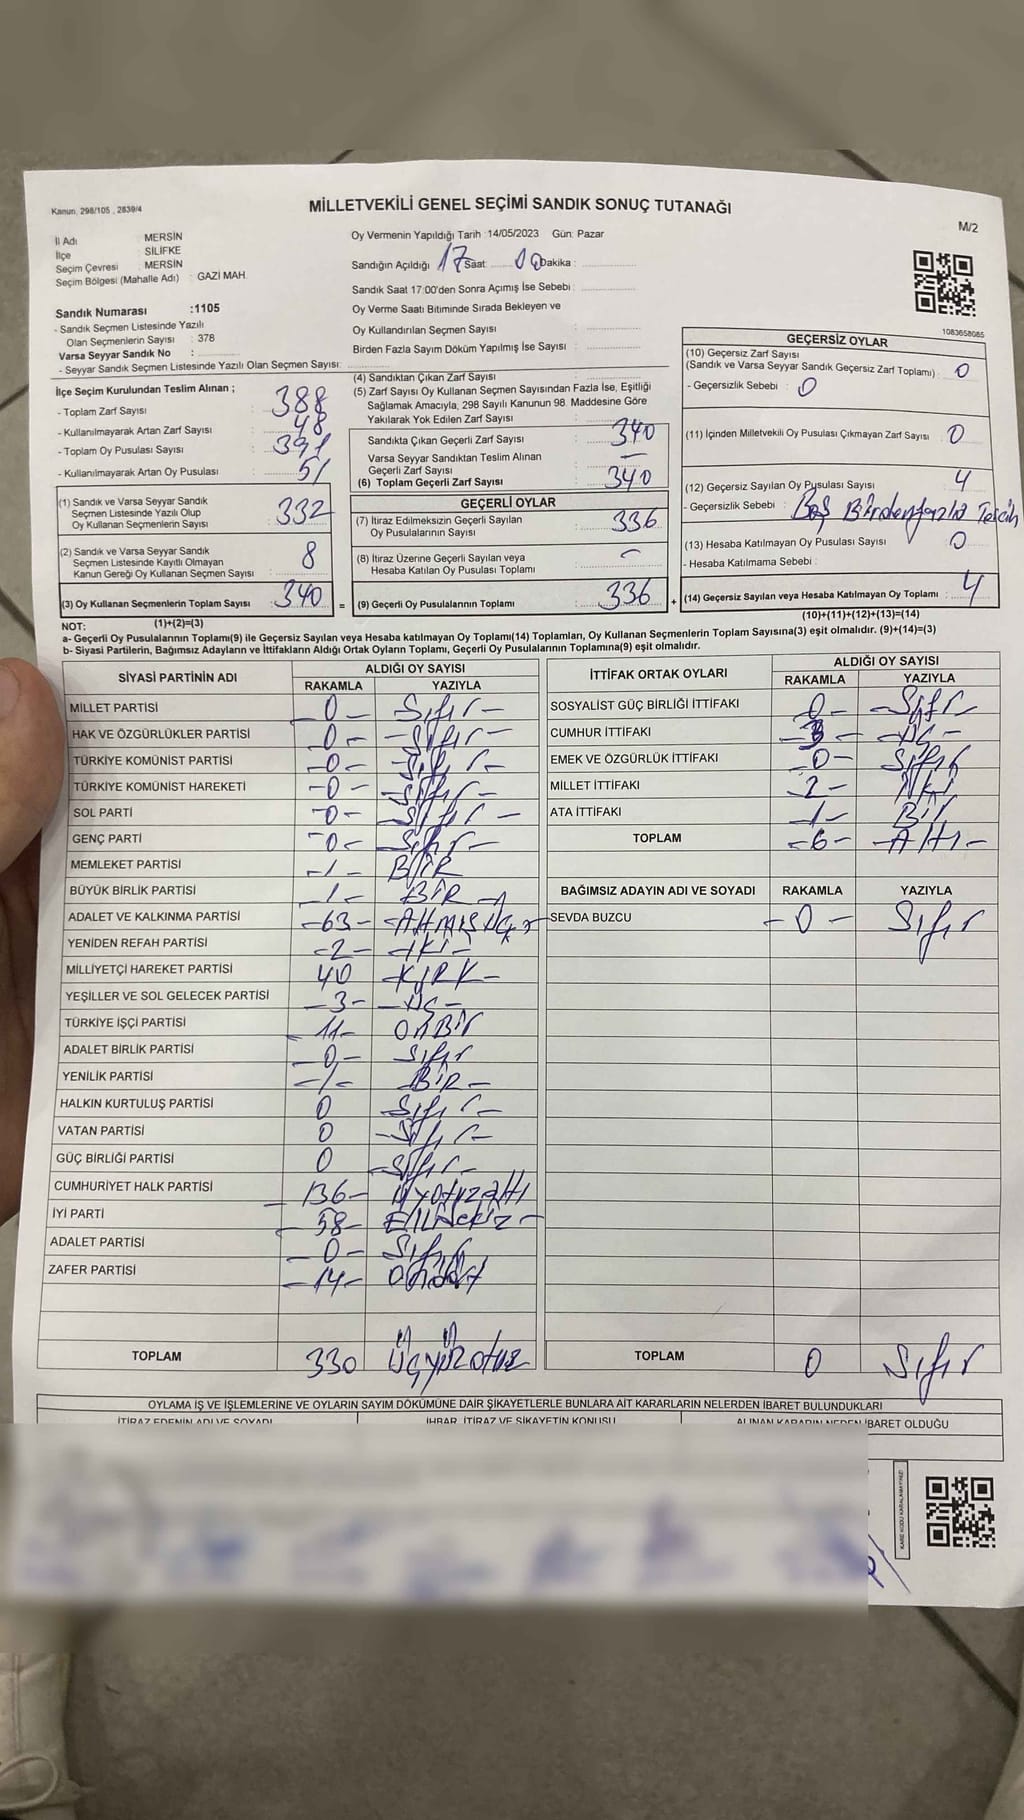 Kanun, 298/105 , 2839/4
MİLLETVEKİLİ GENEL SEÇİMİ SANDIK SONUÇ TUTANAĞI
M/2
İl Adı : MERSİN
İlçe : SİLİFKE
Seçim Çevresi : MERSİN
Seçim Bölgesi (Mahalle Adı) : GAZİ MAH.
Oy Vermenin Yapıldığı Tarih :14/05/2023 Gün: Pazar
Sandığın Açıldığı 17 Saat: Dakika :
Sandık Saat 17:00'den Sonra Açımış İse Sebebi :
Oy Verme Saati Bitiminde Sırada Bekleyen ve
Oy Kullandırılan Seçmen Sayısı :
Birden Fazla Sayım Döküm Yapılmış İse Sayısı :
1083658085
Sandık Numarası :1105
- Sandık Seçmen Listesinde Yazılı
Olan Seçmenlerin Sayısı : 378
Varsa Seyyar Sandık No :
- Seyyar Sandık Seçmen Listesinde Yazılı Olan Seçmen Sayısı:
İlçe Seçim Kurulundan Teslim Alınan ;
- Toplam Zarf Sayısı : 388
- Kullanılmayarak Artan Zarf Sayısı : 48
- Toplam Oy Pusulası Sayısı : 391
- Kullanılmayarak Artan Oy Pusulası : 51
(1) Sandık ve Varsa Seyyar Sandık
Seçmen Listesinde Yazılı Olup
Oy Kullanan Seçmenlerin Sayısı : 332
(2) Sandık ve Varsa Seyyar Sandık
Seçmen Listesinde Kayıtlı Olmayan
Kanun Gereği Oy Kullanan Seçmen Sayısı : 8
(3) Oy Kullanan Seçmenlerin Toplam Sayısı : 340 =
(1)+(2)=(3)
(4) Sandıktan Çıkan Zarf Sayısı :
(5) Zarf Sayısı Oy Kullanan Seçmen Sayısından Fazla İse, Eşitliği
Sağlamak Amacıyla, 298 Sayılı Kanunun 98. Maddesine Göre
Yakılarak Yok Edilen Zarf Sayısı :
Sandıkta Çıkan Geçerli Zarf Sayısı : 340
Varsa Seyyar Sandıktan Teslim Alınan
Geçerli Zarf Sayısı : —
(6) Toplam Geçerli Zarf Sayısı : 340
GEÇERLİ OYLAR
(7) İtiraz Edilmeksizin Geçerli Sayılan
Oy Pusulalarının Sayısı : 336
(8) İtiraz Üzerine Geçerli Sayılan veya
Hesaba Katılan Oy Pusulası Toplamı : -
(9) Geçerli Oy Pusulalarının Toplamı : 336 +
GEÇERSİZ OYLAR
(10) Geçersiz Zarf Sayısı
(Sandık ve Varsa Seyyar Sandık Geçersiz Zarf Toplamı) : 0
- Geçersizlik Sebebi : 0
(11) İçinden Milletvekili Oy Pusulası Çıkmayan Zarf Sayısı : 0
(12) Geçersiz Sayılan Oy Pusulası Sayısı : 4
- Geçersizlik Sebebi : Boş Birden fazla Tercih
(13) Hesaba Katılmayan Oy Pusulası Sayısı : 0
- Hesaba Katılmama Sebebi :
(14) Geçersiz Sayılan veya Hesaba Katılmayan Oy Toplamı : 4
(10)+(11)+(12)+(13)=(14)
NOT:
a- Geçerli Oy Pusulalarının Toplamı(9) ile Geçersiz Sayılan veya Hesaba katılmayan Oy Toplamı(14) Toplamları, Oy Kullanan Seçmenlerin Toplam Sayısına(3) eşit olmalıdır. (9)+(14)=(3)
b- Siyasi Partilerin, Bağımsız Adayların ve İttifakların Aldığı Ortak Oyların Toplamı, Geçerli Oy Pusulalarının Toplamına(9) eşit olmalıdır.
SİYASİ PARTİNİN ADI ALDIĞI OY SAYISI
RAKAMLA YAZIYLA
MİLLET PARTİSİ -0- Sıfır-
HAK VE ÖZGÜRLÜKLER PARTİSİ -0- -Sıfır-
TÜRKİYE KOMÜNİST PARTİSİ -0- -Sıfır-
TÜRKİYE KOMÜNİST HAREKETİ -0- -Sıfır-
SOL PARTİ -0- -Sıfır-
GENÇ PARTİ -0- -Sıfır-
MEMLEKET PARTİSİ -1- BİR
BÜYÜK BİRLİK PARTİSİ -1- BİR-
ADALET VE KALKINMA PARTİSİ -63- -Altmış Üç
YENİDEN REFAH PARTİSİ -2- -İKİ-
MİLLİYETÇİ HAREKET PARTİSİ 40 -KIRK-
YEŞİLLER VE SOL GELECEK PARTİSİ -3- -ÜÇ-
TÜRKİYE İŞÇİ PARTİSİ -11- ONBİR
ADALET BİRLİK PARTİSİ -0- Sıfır
YENİLİK PARTİSİ -1- BİR-
HALKIN KURTULUŞ PARTİSİ 0 -Sıfır-
VATAN PARTİSİ 0 -Sıfır-
GÜÇ BİRLİĞİ PARTİSİ 0 -Sıfır-
CUMHURİYET HALK PARTİSİ -136-
İYİ PARTİ -58- Ellisekiz-
ADALET PARTİSİ -0- Sıfır
ZAFER PARTİSİ -14- Ondört
TOPLAM 330 Üçyüzotuz
İTTİFAK ORTAK OYLARI ALDIĞI OY SAYISI
RAKAMLA YAZIYLA
SOSYALİST GÜÇ BİRLİĞİ İTTİFAKI 0- -Sıfır-
CUMHUR İTTİFAKI -3- -ÜÇ-
EMEK VE ÖZGÜRLÜK İTTİFAKI -0- Sıfır
MİLLET İTTİFAKI -2- İKİ
ATA İTTİFAKI -1- Bir
TOPLAM -6- -Altı-
BAĞIMSIZ ADAYIN ADI VE SOYADI RAKAMLA YAZIYLA
SEVDA BUZCU -0- Sıfır
TOPLAM 0 Sıfır
OYLAMA İŞ VE İŞLEMLERİNE VE OYLARIN SAYIM DÖKÜMÜNE DAİR ŞİKAYETLERLE BUNLARA AİT KARARLARIN NELERDEN İBARET BULUNDUKLARI
İTİRAZ EDENİN ADI VE SOYADI İHBAR, İTİRAZ VE ŞİKAYETİN KONUSU ALINAN KARARIN NEDEN İBARET OLDUĞU